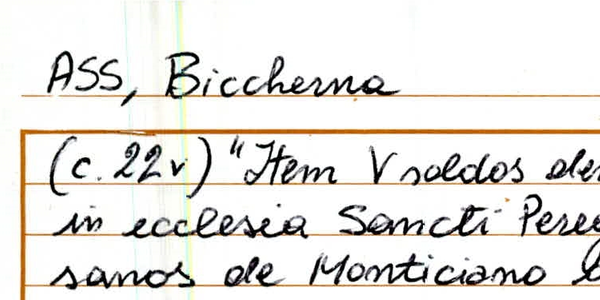 ASS, Biccherna
(c. 22v) "Item V soldos
in ecclesia Sancti
sanos de Monticiano